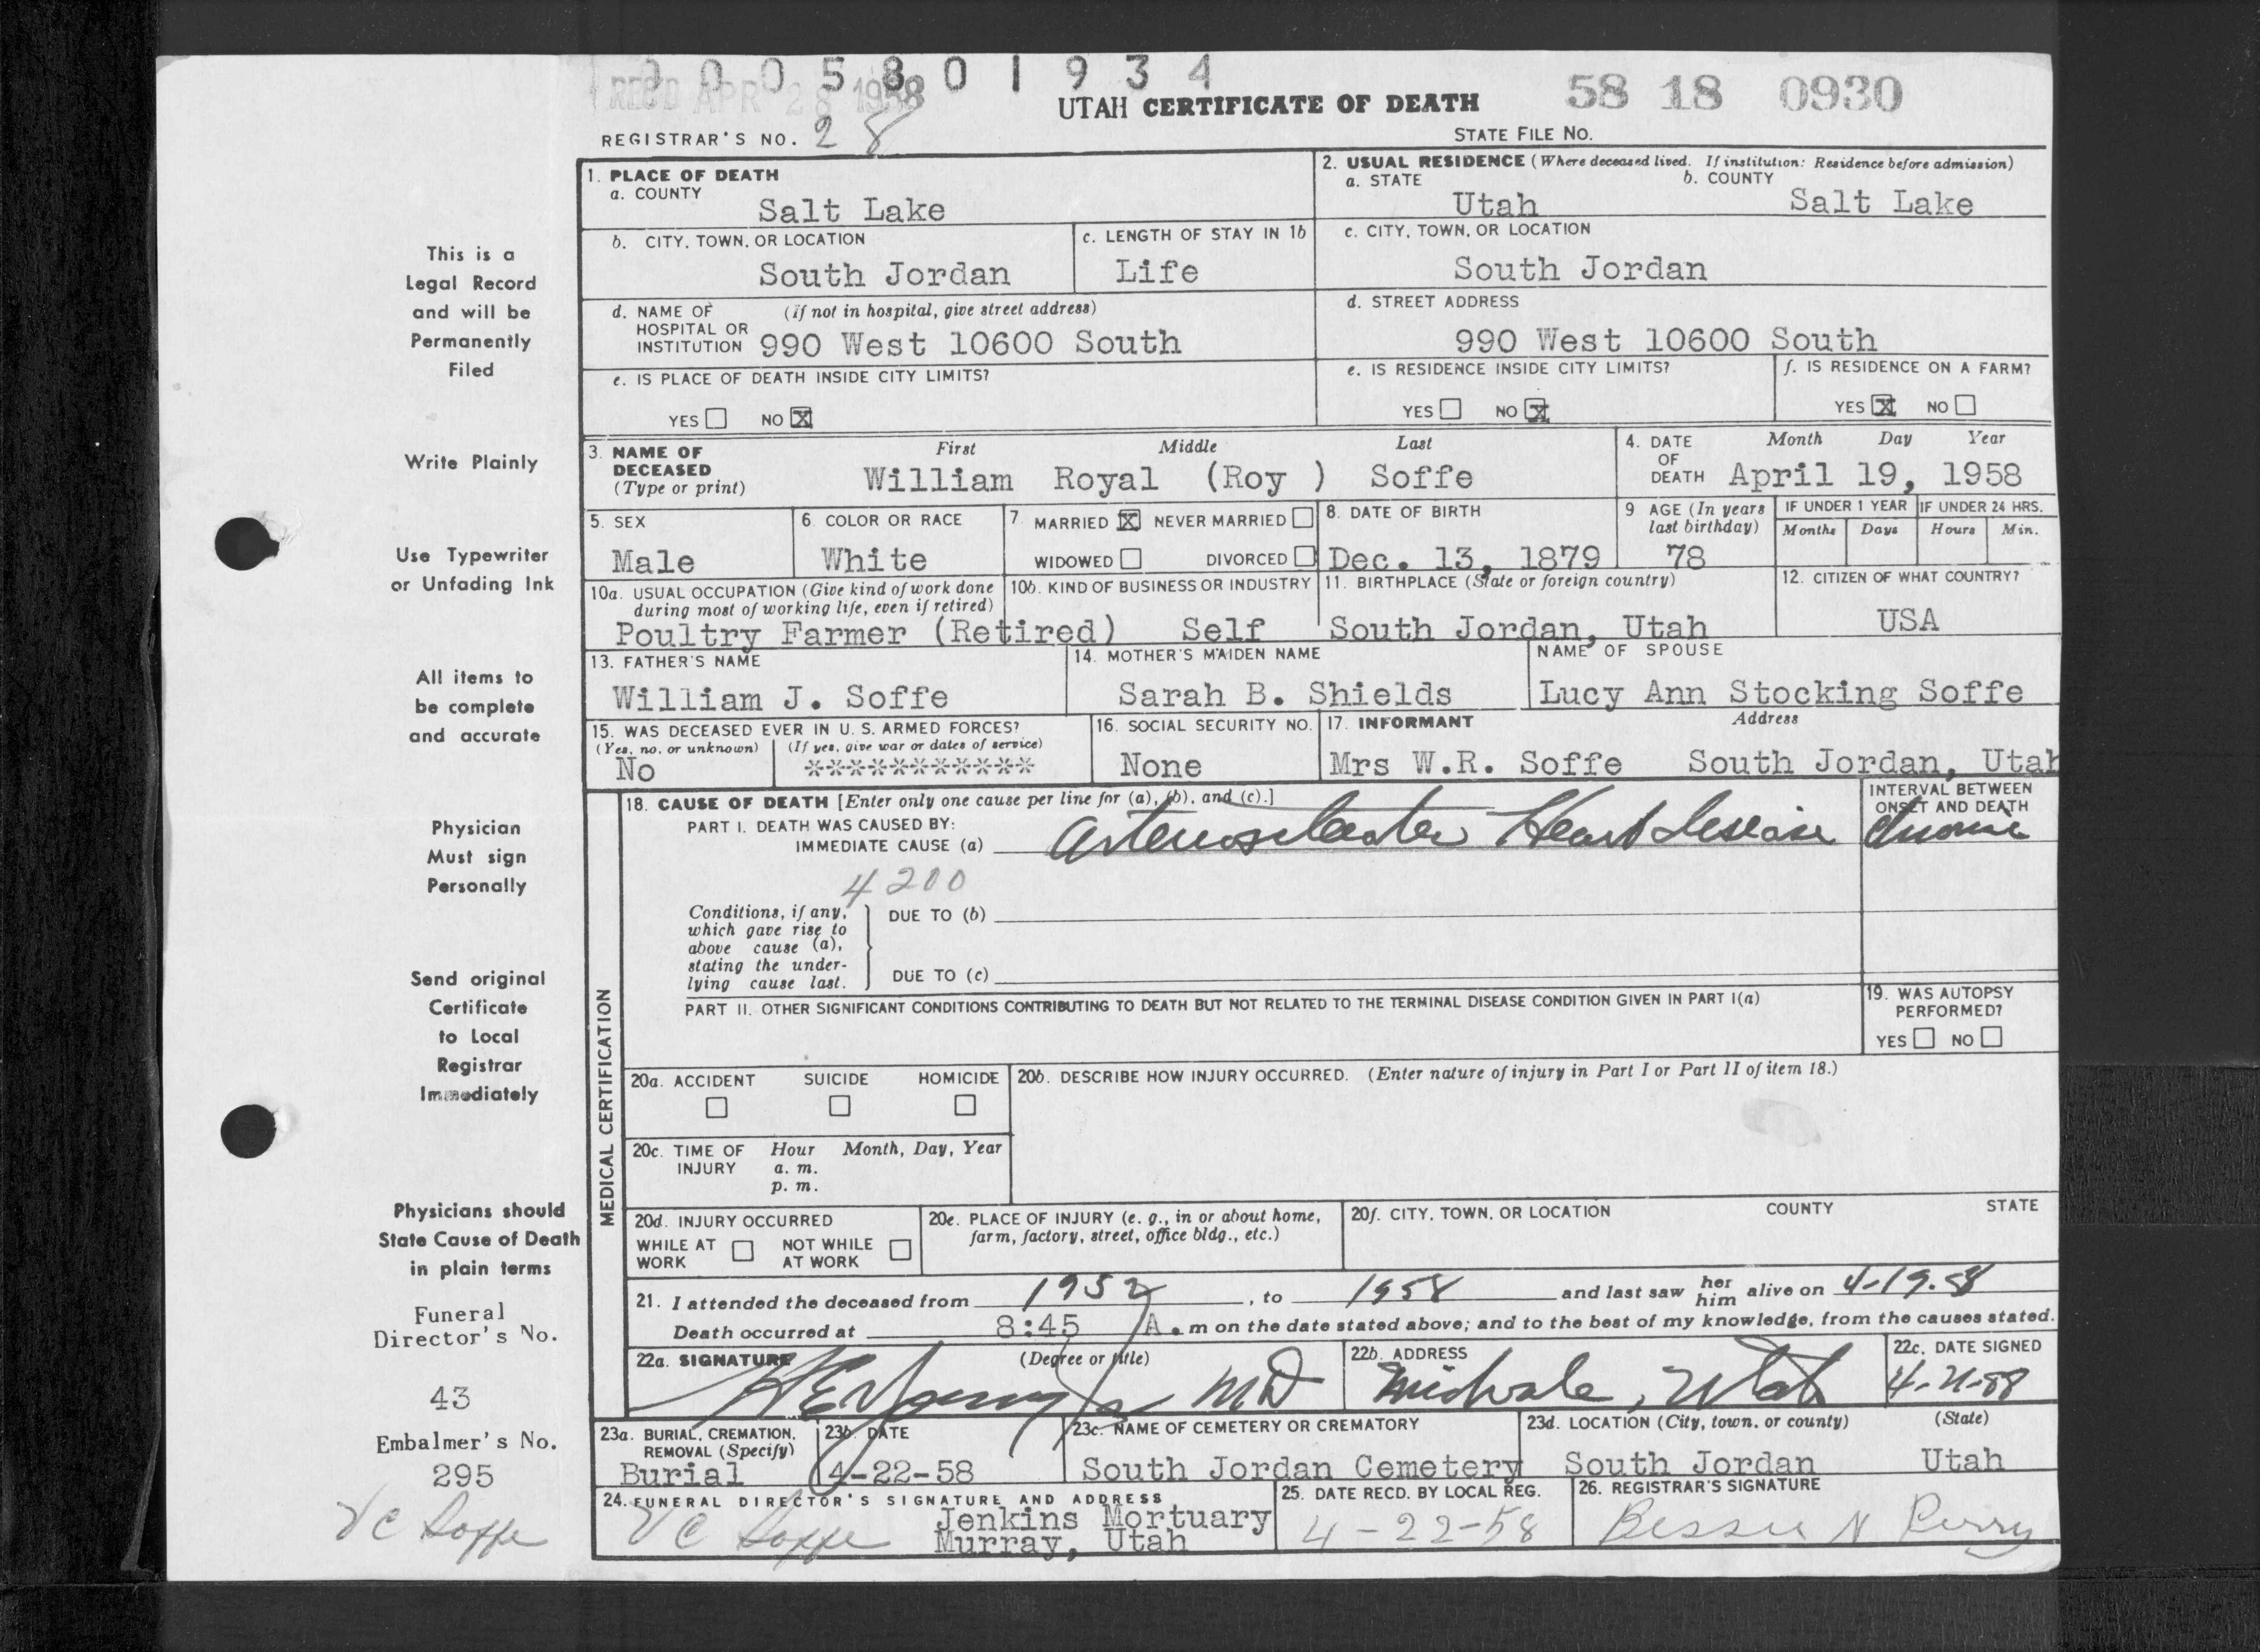 0 0 0 5 8 0 1 9 3 4
REC'D APR 28 1958
58 18 0930
UTAH CERTIFICATE OF DEATH
REGISTRAR'S NO. 28
STATE FILE NO.
1. PLACE OF DEATH
a. COUNTY
Salt Lake
2. USUAL RESIDENCE (Where deceased lived. If institution: Residence before admission)
a. STATE
Utah
b. COUNTY
Salt Lake
b. CITY, TOWN, OR LOCATION
South Jordan
c. LENGTH OF STAY IN 1b
Life
c. CITY, TOWN, OR LOCATION
South Jordan
d. NAME OF (If not in hospital, give street address)
HOSPITAL OR
INSTITUTION 990 West 10600 South
d. STREET ADDRESS
990 West 10600 South
e. IS PLACE OF DEATH INSIDE CITY LIMITS?
YES NO X
e. IS RESIDENCE INSIDE CITY LIMITS?
YES NO X
f. IS RESIDENCE ON A FARM?
YES X NO
3. NAME OF DECEASED
(Type or print)
First Middle Last
William Royal (Roy ) Soffe
4. DATE OF DEATH
Month Day Year
April 19, 1958
5. SEX
Male
6. COLOR OR RACE
White
7. MARRIED X NEVER MARRIED
WIDOWED DIVORCED
8. DATE OF BIRTH
Dec. 13, 1879
9 AGE (In years
last birthday)
78
IF UNDER 1 YEAR
Months Days
IF UNDER 24 HRS.
Hours Min.
10a. USUAL OCCUPATION (Give kind of work done
during most of working life, even if retired)
Poultry Farmer (Retired)
10b. KIND OF BUSINESS OR INDUSTRY
Self
11. BIRTHPLACE (State or foreign country)
South Jordan, Utah
12. CITIZEN OF WHAT COUNTRY?
USA
13. FATHER'S NAME
William J. Soffe
14. MOTHER'S MAIDEN NAME
Sarah B. Shields
NAME OF SPOUSE
Lucy Ann Stocking Soffe
15. WAS DECEASED EVER IN U. S. ARMED FORCES?
(Yes, no, or unknown) (If yes, give war or dates of service)
No ***********
16. SOCIAL SECURITY NO.
None
17. INFORMANT Address
Mrs W.R. Soffe South Jordan, Utah
MEDICAL CERTIFICATION
18. CAUSE OF DEATH [Enter only one cause per line for (a), (b), and (c).]
PART I. DEATH WAS CAUSED BY:
IMMEDIATE CAUSE (a) Arteriosclerotic Heart disease
INTERVAL BETWEEN
ONSET AND DEATH
chronic
4200
Conditions, if any,
which gave rise to
above cause (a),
stating the under-
lying cause last.
DUE TO (b)
DUE TO (c)
PART II. OTHER SIGNIFICANT CONDITIONS CONTRIBUTING TO DEATH BUT NOT RELATED TO THE TERMINAL DISEASE CONDITION GIVEN IN PART I(a)
19. WAS AUTOPSY
PERFORMED?
YES NO
20a. ACCIDENT SUICIDE HOMICIDE
20b. DESCRIBE HOW INJURY OCCURRED. (Enter nature of injury in Part I or Part II of item 18.)
20c. TIME OF INJURY
Hour Month, Day, Year
a. m.
p. m.
20d. INJURY OCCURRED
WHILE AT WORK
NOT WHILE AT WORK
20e. PLACE OF INJURY (e. g., in or about home,
farm, factory, street, office bldg., etc.)
20f. CITY, TOWN, OR LOCATION COUNTY STATE
21. I attended the deceased from 1952, to 1958 and last saw her him alive on 4-19-58
Death occurred at 8:45 A.m on the date stated above; and to the best of my knowledge, from the causes stated.
22a. SIGNATURE (Degree or title)
MD
22b. ADDRESS
Midvale, Utah
22c. DATE SIGNED
4-21-58
23a. BURIAL, CREMATION,
REMOVAL (Specify)
Burial
23b. DATE
4-22-58
23c. NAME OF CEMETERY OR CREMATORY
South Jordan Cemetery
23d. LOCATION (City, town, or county) (State)
South Jordan Utah
24. FUNERAL DIRECTOR'S SIGNATURE AND ADDRESS
V C Soffe
Jenkins Mortuary
Murray, Utah
25. DATE RECD. BY LOCAL REG.
4-22-58
26. REGISTRAR'S SIGNATURE
Bessie N Perry
This is a
Legal Record
and will be
Permanently
Filed
Write Plainly
Use Typewriter
or Unfading Ink
All items to
be complete
and accurate
Physician
Must sign
Personally
Send original
Certificate
to Local
Registrar
Immediately
Physicians should
State Cause of Death
in plain terms
Funeral
Director's No.
43
Embalmer's No.
295
V C Soffe